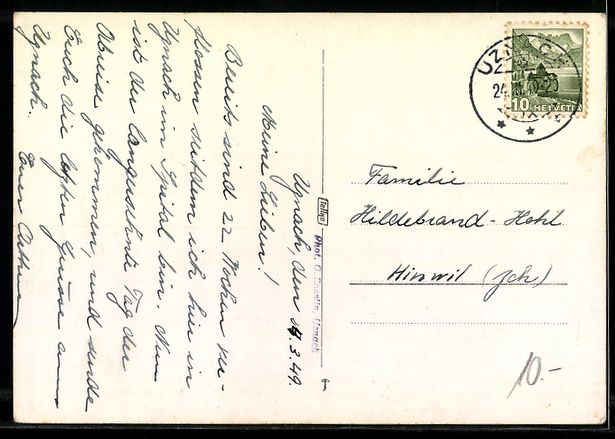 Uznach, den 24.3.49.
Meine Lieben!
Bereits sind 22 Wochen ver-
flossen seitdem ich hier in
Uznach im Spital bin. Nun
ist der langersehnte Tag der
Abreise gekommen, und sende
Euch die letzten Grüsse aus
Uznach.
Euer
Phot. G. Uznach
UZNACH
24
10 HELVETIA
Familie
Hildebrand-Hohl
Hinwil (Zch)
10.-